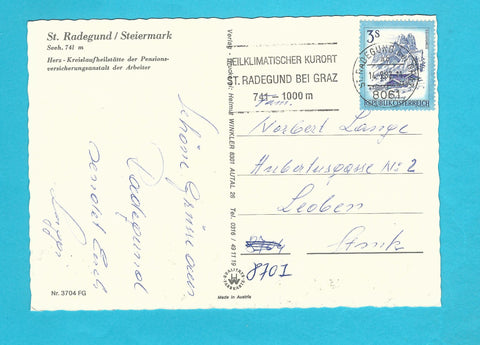 St. Radegund / Steiermark
Seeh. 741 m
Herz - Kreislaufheilstätte der Pensions-
versicherungsanstalt der Arbeiter
Schöne Grüsse aus
Radegund
sendet Euch
Nr. 3704 FG
Verlag
Helmut WINKLER 8301 AUTAL 26 Tel. 0316 / 49 11 19
Made in Austria
HEILKLIMATISCHER KURORT
ST. RADEGUND BEI GRAZ
741 - 1000 m
ST. RADEGUND
8061
3S
REPUBLIK ÖSTERREICH
Fam.
Norbert Lange
Hubertusgasse No 2
Leoben
8701